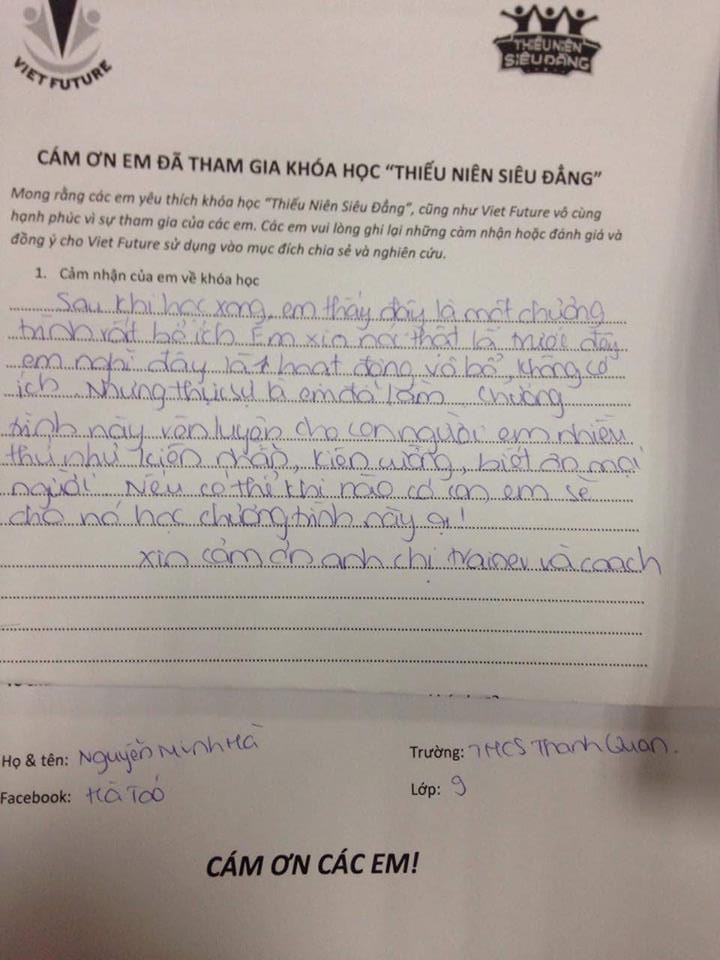 VIET FUTURE
THIẾU NIÊN
SIÊU ĐẲNG
CÁM ƠN EM ĐÃ THAM GIA KHÓA HỌC “THIẾU NIÊN SIÊU ĐẲNG”
Mong rằng các em yêu thích khóa học “Thiếu Niên Siêu Đẳng”, cũng như Viet Future vô cùng
hạnh phúc vì sự tham gia của các em. Các em vui lòng ghi lại những cảm nhận hoặc đánh giá và
đồng ý cho Viet Future sử dụng vào mục đích chia sẻ và nghiên cứu.
1. Cảm nhận của em về khóa học
Sau khi học xong, em thấy đây là một chương
trình rất bổ ích. Em xin nói thật là trước đây
em nghĩ đây là 1 hoạt động vô bổ, không có
ích. Nhưng thực sự là em đã lầm. Chương
trình này rèn luyện cho con người em nhiều
thứ như kiên nhẫn, kiên cường, biết ơn mọi
người. Nếu có thể khi nào có con em sẽ
cho nó học chương trình này ạ!
Xin cảm ơn anh chị trainer và coach
Họ & tên: Nguyễn Minh Hà
Trường: THCS Thanh Quan.
Facebook: Hà Táo
Lớp: 9
CÁM ƠN CÁC EM!